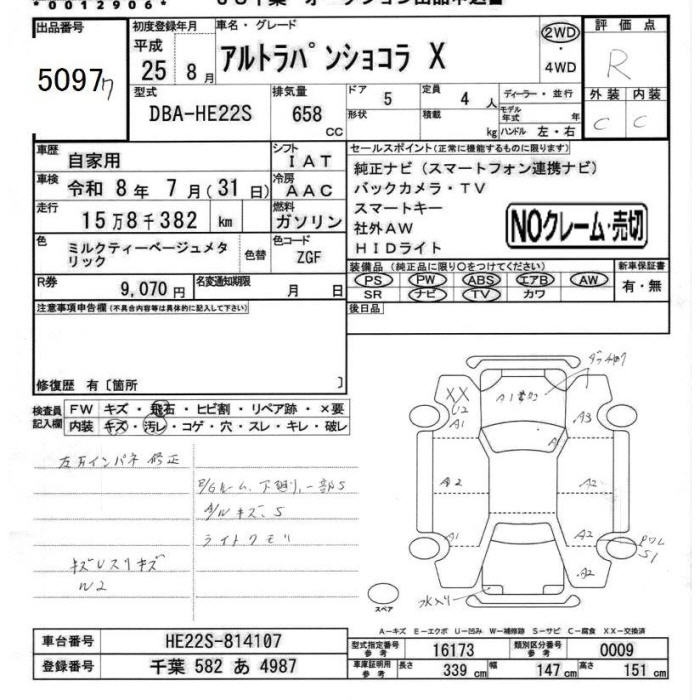 *0012906*
出品番号
5097
初度登録年月
平成
25 8月
車名・グレード
アルトラパンショコラ X
2WD
・
4WD
評価点
R
外装 内装
C C
型式
DBA-HE22S
排気量
658
CC
ドア
5
形状
定員
4 人
積載
kg
ディーラー・並行
モデル年式 年
ハンドル 左・右
車歴
自家用
シフト
IAT
車検
令和 8年 7月(31日)
冷房
AAC
走行
15万8千382 km
燃料
ガソリン
色
ミルクティーベージュメタリック
色替
色コード
ZGF
R券
9,070円
名変通知期限
月 日
セールスポイント(正常に機能するものに限ります)
純正ナビ(スマートフォン連携ナビ)
バックカメラ・TV
スマートキー
社外AW
HIDライト
NOクレーム・売切
装備品(純正品に限り○をつけてください)
PS PW ABS エアB AW
SR ナビ TV カワ
新車保証書
有・無
後日品
注意事項申告欄(不具合内容等は具体的に記入して下さい)
修復歴 有〔箇所 〕
検査員記入欄
FW キズ・飛石・ヒビ割・リペア跡・×要
内装 キズ・汚レ・コゲ・穴・スレ・キレ・破レ
左方インパネ修正
E/Gルーム、下廻り、一部S
A/Wキズ、S
ライトクモリ
キズUスリキズ
W2
XX
U2
A1
A1
A3
A2
A2
A1
A2
A2
S1
水入り
スペア
A−キズ E−エクボ U−凹み W−補修跡 S−サビ C−腐食 XX−交換済
車台番号
HE22S-814107
登録番号
千葉 582 あ 4987
型式指定番号 参考
16173
類別区分番号 参考
0009
車庫証明用 参考
長さ 339 cm 幅 147 cm 高さ 151 cm